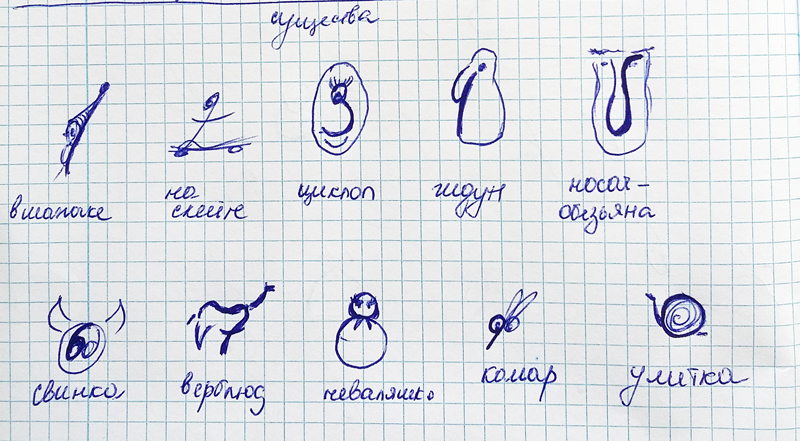 существа
в шапочке
на
скейте
циклоп
ждун
носач-
обезьяна
свинка
верблюд
неваляшка
комар
улитка